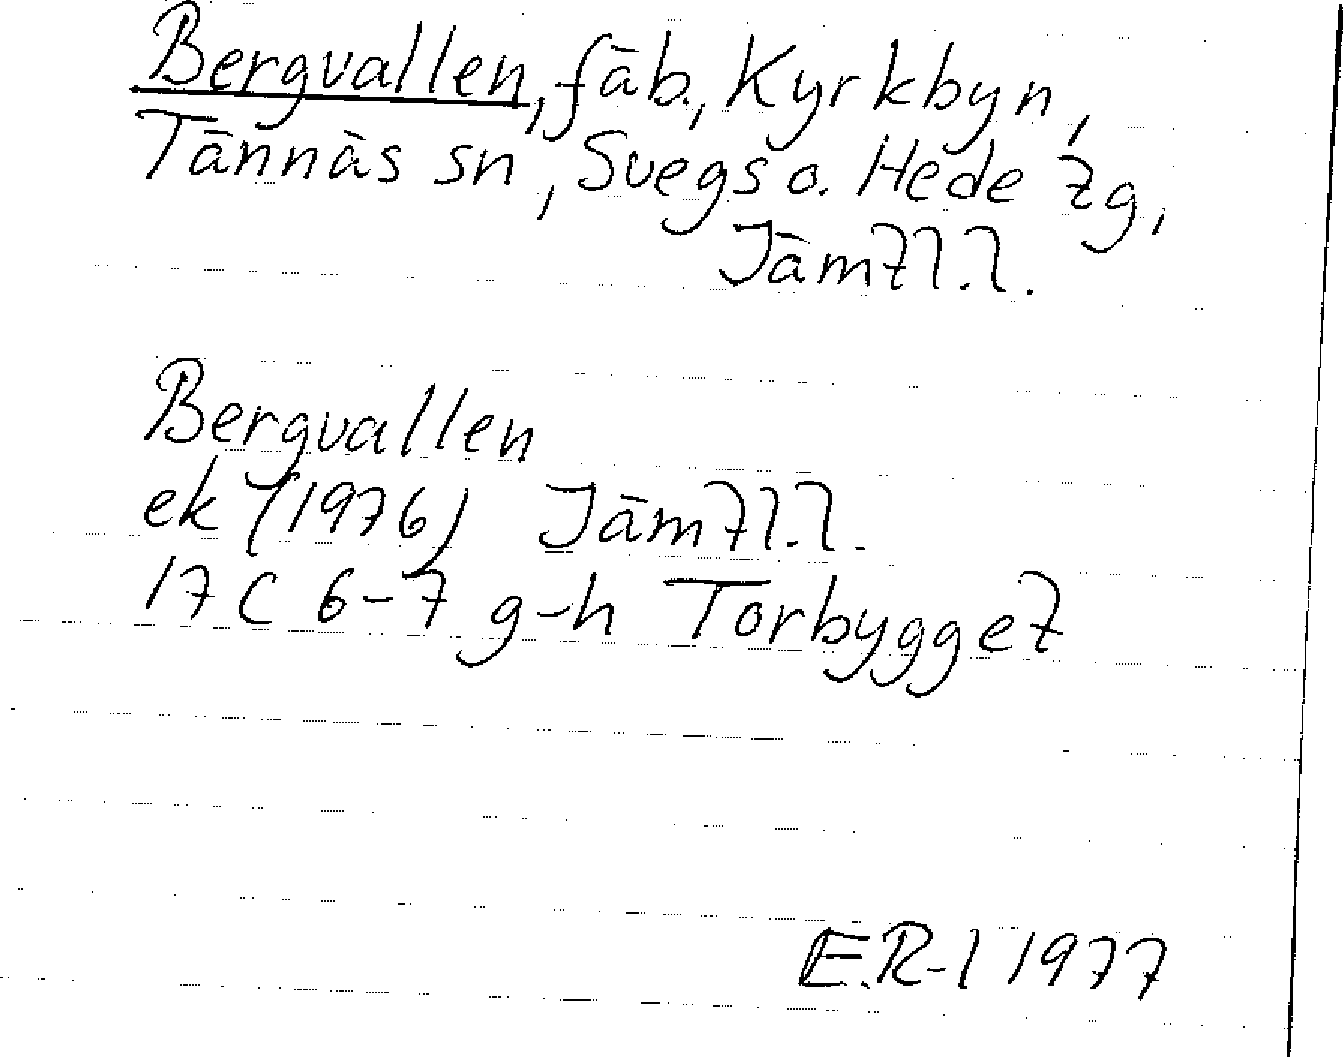 Bergvallen, fäb., Kyrkbyn,
Tännäs sn, Svegs o. Hede tg,
Jämtl.l.
Bergvallen
ek (1976) Jämtl.l.
17C 6-7 g-h Torbygget
E.R-l 1977